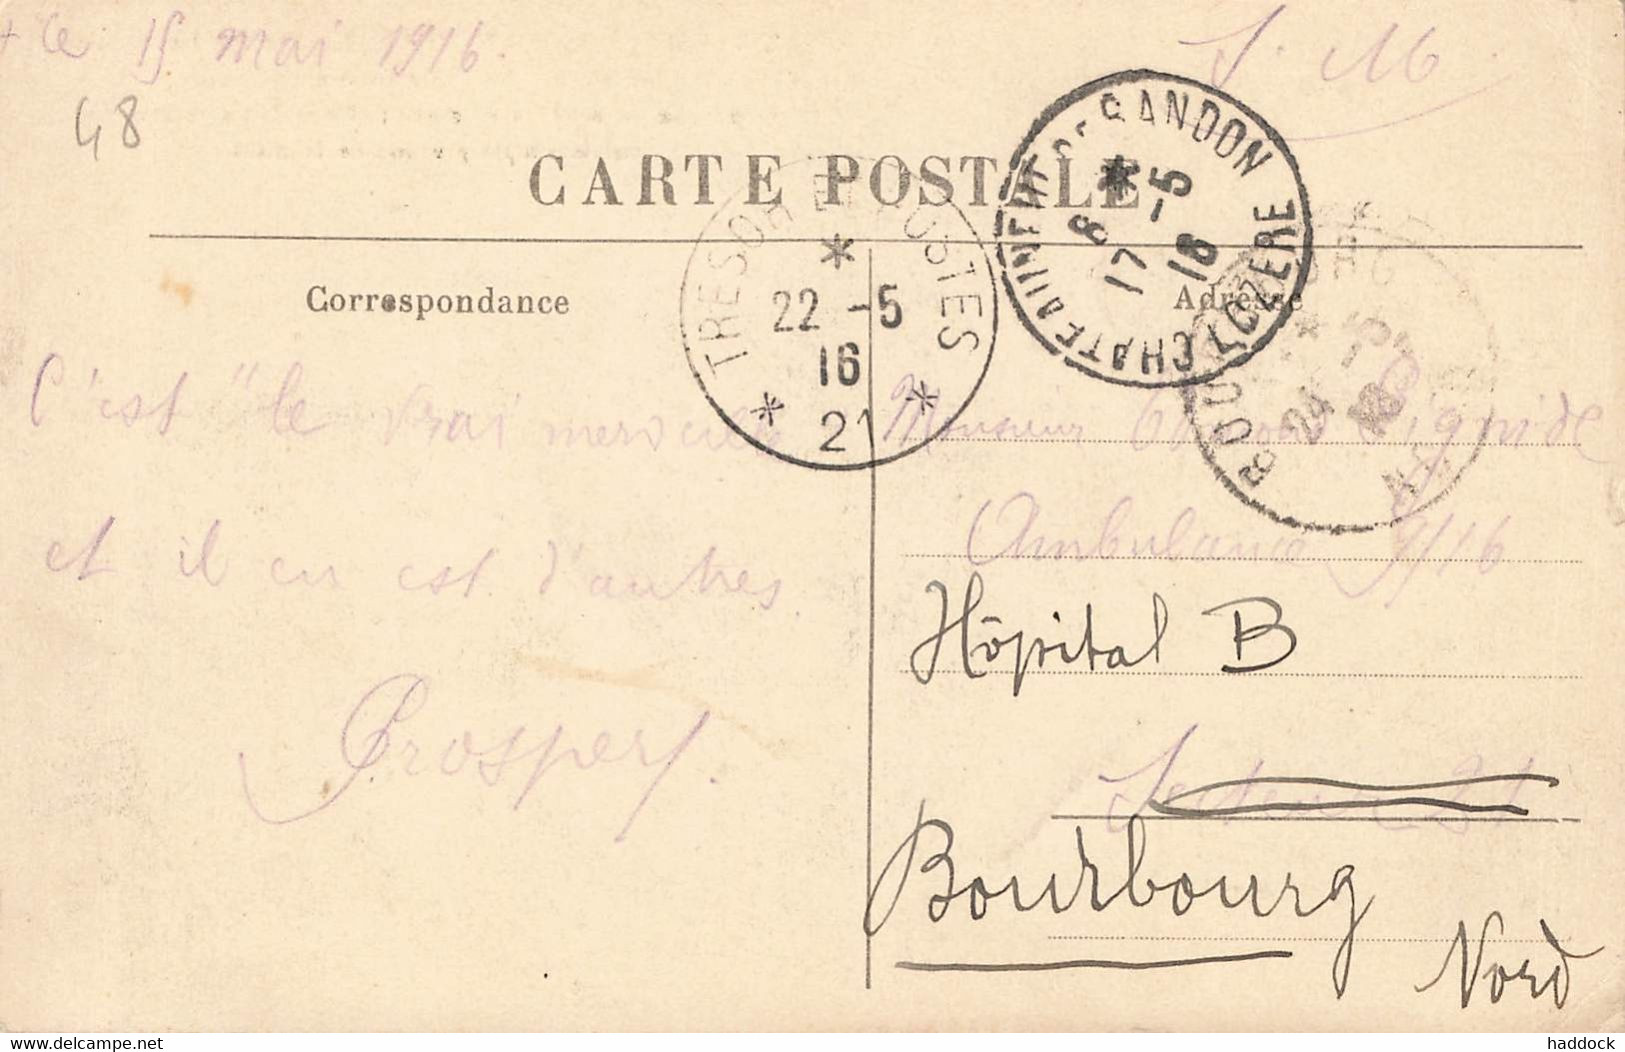 le 15 mai 1916.
S. M.
48
CARTE POSTALE
CHATEAUNEUF DE RANDON LOZERE
8 * 17 -5 16
TRESOR ET POSTES
* 22 -5 16 * 21 *
BOURBOURG
* 24 -5
Correspondance
Adresse
C'est "le vrai
et il en est d'autres.
Prosper.
Monsieur
Ambulance 9/16
Hôpital B
Secteur 21
Bourbourg
Nord
Delcampe.net
haddock